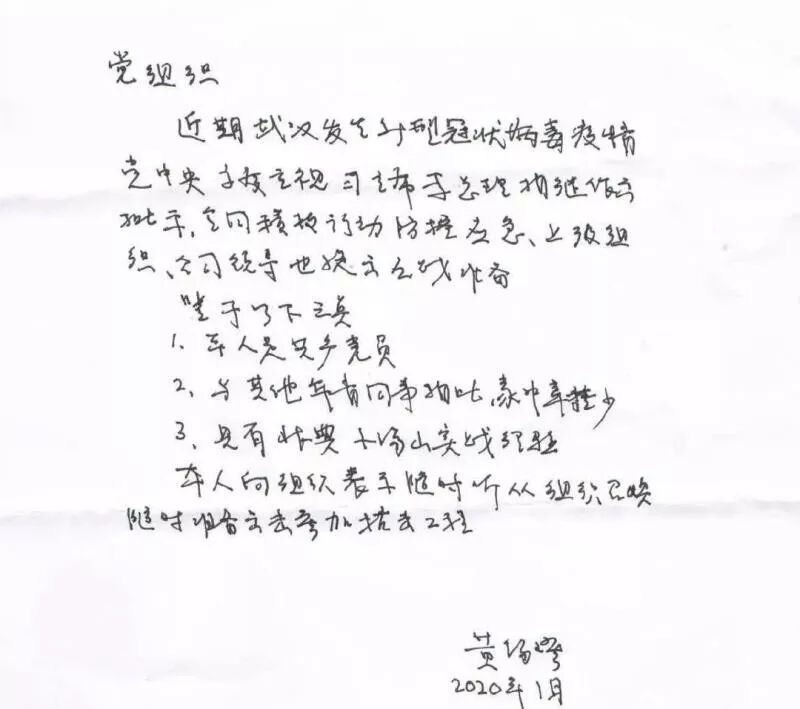 党组织
近期武汉发生新型冠状病毒疫情
党中央高度重视 习主席李总理相继作出
批示,全国积极行动防控应急、上级组
织、公司领导也提出应战准备
鉴于以下三点
1、本人是共产党员
2、与其他年青同事相比,家中牵挂少
3、具有 小汤山实战经验
本人向组织表示随时听从组织召唤
随时准备出去参加抗击工程
黄
2020年1月